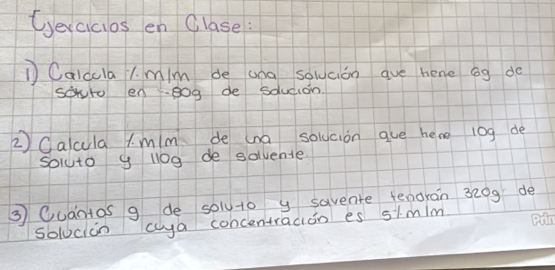 Ejercicios en Clase:
1) Calcula %m/m de una solución que tiene 6g de
soluto en 80g de solución.
2) Calcula %m/m de una solución que tiene 10g de
soluto y 110g de solvente.
3) Cuántos g de soluto y savente tendrán 320g de
solución cuya concentración es 5%m/m